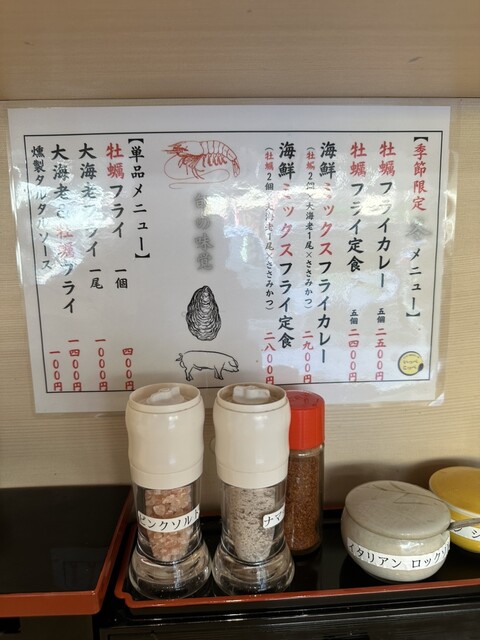 【季節限定 冬メニュー】
牡蠣フライカレー 五個 二五00円
牡蠣フライ定食 五個 二四00円
海鮮ミックスフライカレー 二九00円
(牡蠣2個×大海老1尾×ささみかつ)
海鮮ミックスフライ定食 二八00円
(牡蠣2個×大海老1尾×ささみかつ)
の味覚
【単品メニュー】
牡蠣フライ 一個 四00円
大海老フライ 一尾 一000円
大海老と牡蠣フライ 一四00円
燻製タルタルソース 一00円
ピンクソルト
ナマ
イタリアン ロックソル
シ